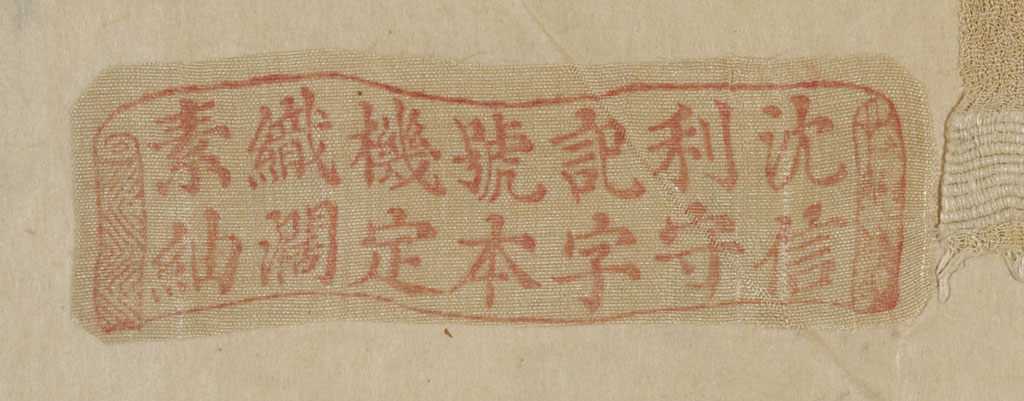 沈信
利守
記字
號本
機定
織濶
素紬